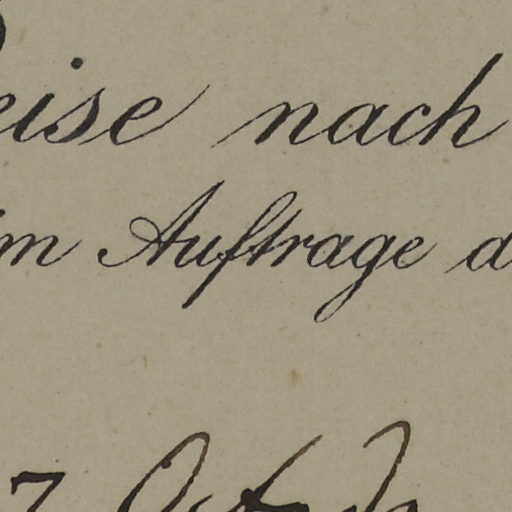 eise nach
im Auftrage d
7. Octob